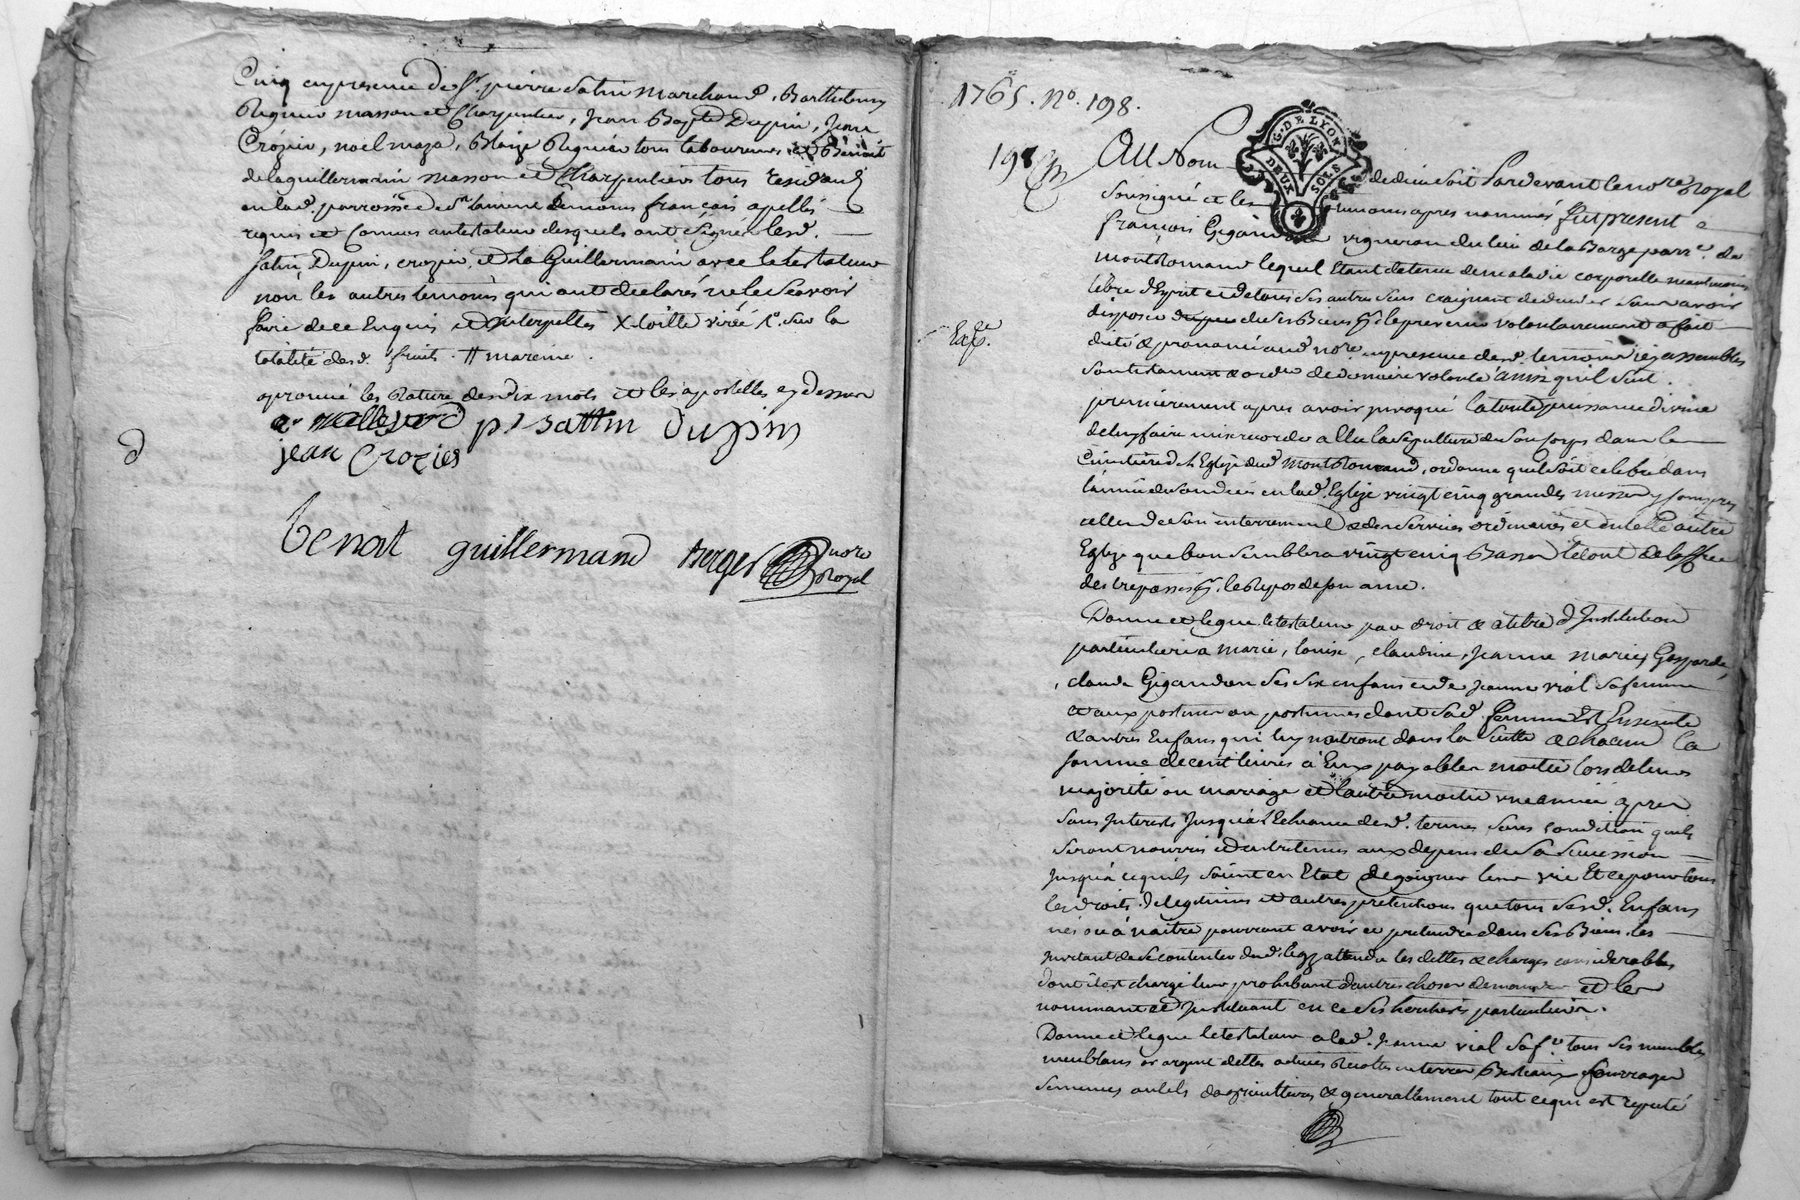 Cinq en presence de Sr. pierre Satin marchand, Barthelemy
Regnier masson et Charpentier, Jean Bapte Dupin, Jean
Crozier, noel maza, Blaize Regnier tous laboureurs et Benoit
de la guillermain masson et Charpentier tous residans
en lad. parroisse de St. temoins français apellés
requis et Connus au testateur desquels ont signé lesd.
Satin, Dupin, crozier, et La Guillermain avec le testateur
non les autres temoins qui ont declarés ne le Scavoir
faire de ce Enquis et Interpellés X toille virée /. sur la
totalité desd. fruits . # mareine .
aprouvé les Rature de dix mots et les apostilles cy dessus
p / sattin Dupin
jean Crozier
benoit guillermand Berger nore
Royal
1765. No. 198.
198
G. DE LYON
DEUX SOLS
AU Nom de dieu soit Pardevant le nore Royal
Soussigné et les temoins apres nommés fut present
françois Gigandon vigneron du lieu de la Barge parre. de
montromand lequel Etant detenu de maladie corporelle neantmoins
libre d'Esprit et de tous ses autres sens craignant de deceder sans avoir
disposé de ses Biens pr. le prevenir volontairement a fait
Expé.
dicté & prononcé aud. nore. en presence desd. temoins icy assemblés
son testament & ordre de derniere volonté ainsi qu'il suit .
premierement apres avoir invoqué la toute puissance divine
de luy faire misericorde a Elu la Sepulture de Son Corps dans le
Cimetiere de l'Eglize dud. Montromand, ordonne qu'il soit celebré dans
l'année de son decès en lad. Eglize vingt cinq grandes messes y compris
celles de son enterrement & des services ordinaires et en telle autre
Eglize que bon semblera vingt cinq Basses le tout de l'office
des trepassés pr. le Repos de son ame.
Donne et legue le testateur par droit & a titre d'Institution
particuliere a marie, louise, claudine, Jeanne marie, Gasparde,
claude Gigandon ses six enfans et de Jeanne vial sa femme
et aux postume ou postumes dont sad. femme Est Enceinte
& autres Enfans qui luy naitront dans la Suitte a chacun la
somme de cent livres a Eux payables moitié lors de leurs
majorité ou mariage et l'autre moitié une année apres
sans Interests Jusqu'a l'Echeance desd. termes sous condition qu'ils
seront nourris et Entretenus aux depens de sa Succession
Jusqu'a ce qu'ils soint en Etat de gaigner leur vie Et ce pour tous
les droits de legitimes et autres pretentions que tous sesd. Enfans
nés ou à naitre pourront avoir et pretendre dans ses Biens, les
Invitant de se contenter dud. legs attendu les dettes & charges considerables
dont il est chargé leur prohibant d'autres choses demander et les
nommant et Instituant en ce ses heritiers particuliers.
Donne et legue le testateur a lad. Jeanne vial sa fe. tous ses meubles
meublans or argent dettes actives Recoltes en terres Bestiaux fourrages
semences outils d'agriculture & generallement tout ce qui est reputé